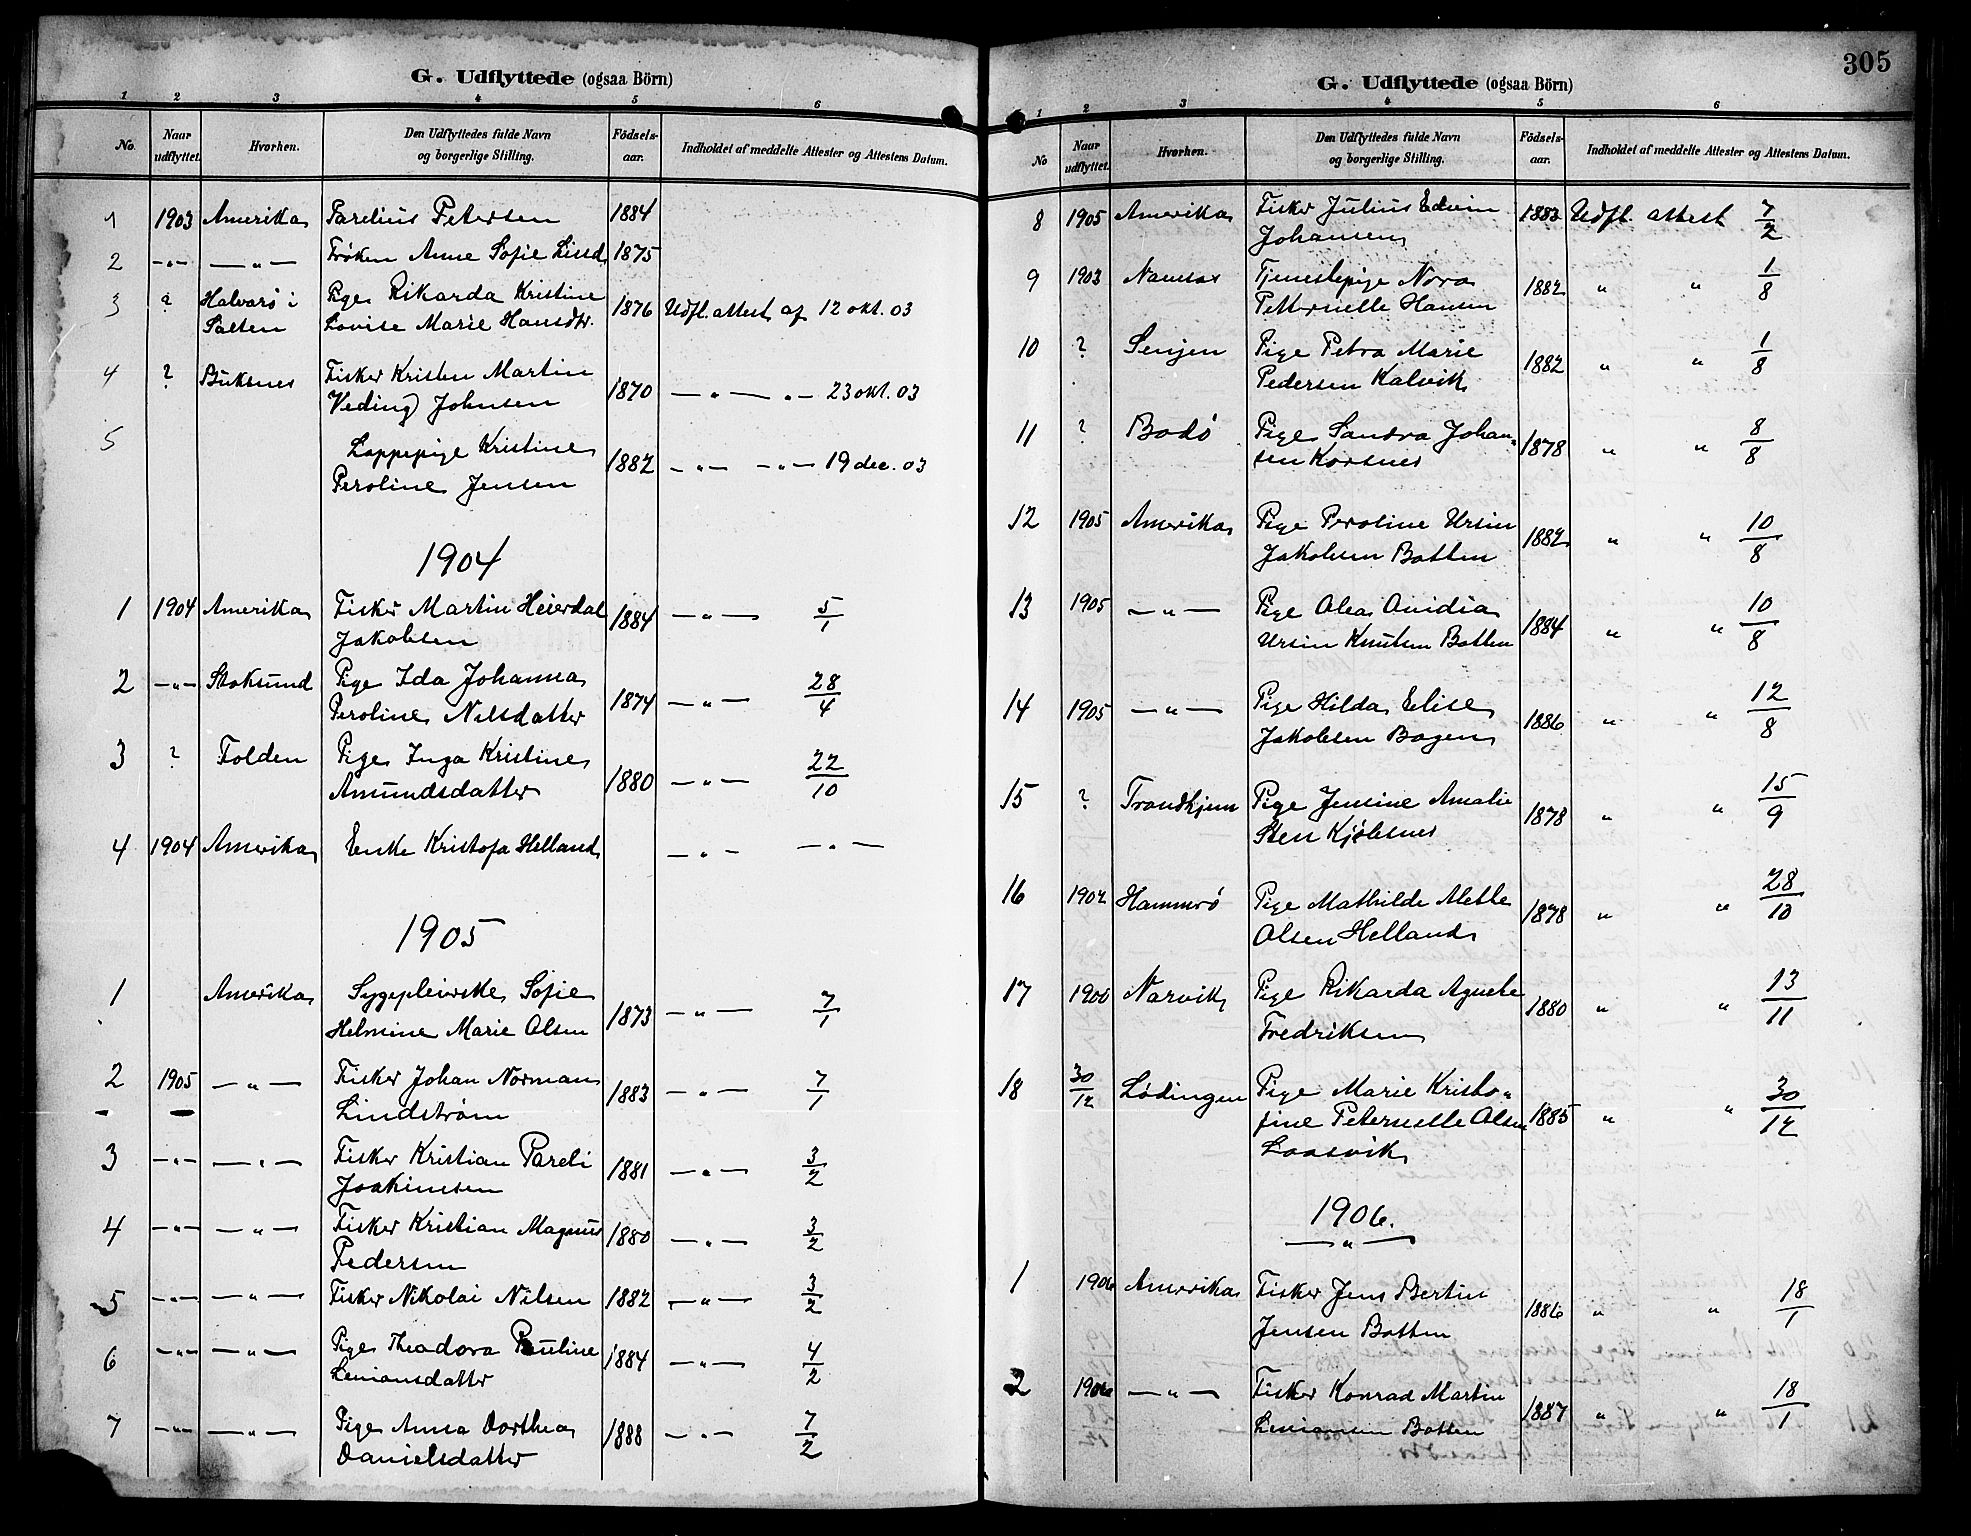 G. Udflyttede (ogsaa Börn)
1 2 3 4 5 6
No. Naar udflyttet. Hvorhen. Den Udflyttedes fulde Navn og borgerlige Stilling. Födsels-aar. Indholdet af meddelte Attester og Attestens Datum.
1 1903 Amerika Parelius Petersen 1884
2 -"- -"- Frøken Anne Sofie Lind 1875
3 ? Halvarø i Pige Rikarda Kristine
Salten Lovise Marie Hansdtr. 1876 Udfl. attest af 12 okt. 03
4 ? Buksnes Fisker Kristen Martin
Veding Johnsen 1870 -"- "- 23 okt. 03
5 Lappepige Kristine
Peroline Jensen 1882 -"- -"- 19 dec. 03
1904
1 1904 Amerika Fisker Martin Heierdal
Jakobsen 1884 -"- 5/1
2 -"- Stoksund Pige Ida Johanna
Peroline Nilsdatter 1874 -"- 28/4
3 ? Folden Pige Inga Kristine
Amundsdatter 1880 -"- 22/10
4 1904 Amerika Enke Kristofa Helland -"- -"-
1905
1 Amerika Sygepleierske Sofie
Helmine Marie Olsen 1873 -"- 7/1
2 1905 -"- Fisker Johan Norman
Lindstrøm 1883 -"- 7/1
3 -"- -"- Fisker Kristian Pareli
Joakimsen 1881 -"- 3/2
4 -"- -"- Fisker Kristian Magnus
Pedersen 1880 -"- 3/2
5 -"- -"- Fisker Nikolai Nilsen 1882 -"- 3/2
6 -"- -"- Pige Theodora Pauline
Simonsdatter 1884 -"- 4/2
7 -"- -"- Pige Anna Dorthea
Danielsdatter 1888 -"- 7/2
305
G. Udflyttede (ogsaa Börn)
1 2 3 4 5 6
No Naar udflyttet. Hvorhen. Den Udflyttedes fulde Navn og borgerlige Stilling. Födsels-aar. Indholdet af meddelte Attester og Attestens Datum.
8 1905 Amerika Fisker Julius Edvin 1883 Udfl. attest 7/2
Johansen
9 1903 Namsos Tjenestepige Nora
Petternelle Hansen 1882 " " 1/8
10 ? Senjen Pige Petra Marie
Pedersen Kalvik 1882 " " 1/8
11 ? Bodø Pige Sandra Johan-
sen Korsnes 1878 " " 8/8
12 1905 Amerika Pige Peroline Ursin
Jakobsen Botten 1882 " " 10/8
13 1905 -"- Pige Alea Ovidia
Ursin Knutsen Botten 1884 " " 10/8
14 1905 -"- Pige Hilda Elise
Jakobsen Bogen 1886 " " 12/8
15 ? Trondhjem Pige Jensine Amalie
Sten Kjøbsnes 1878 " " 15/9
16 1902 Hammerø Pige Mathilde Mette
Olsen Helland 1878 " " 28/10
17 1900 Narvik Pige Rikarda Agnete
Fredriksen 1880 " " 13/11
18 30/12 Lødingen Pige Marie Kristo-
fine Peternelle Olsen 1885 " " 30/12
Laasvik
1906.
-"-
1 1906 Amerika Fisker Jens Bertin
Jensen Botten 1886 " " 18/1
2 1906 -"- Fisker Konrad Martin
Simonsen Botten 1887 " " 18/1